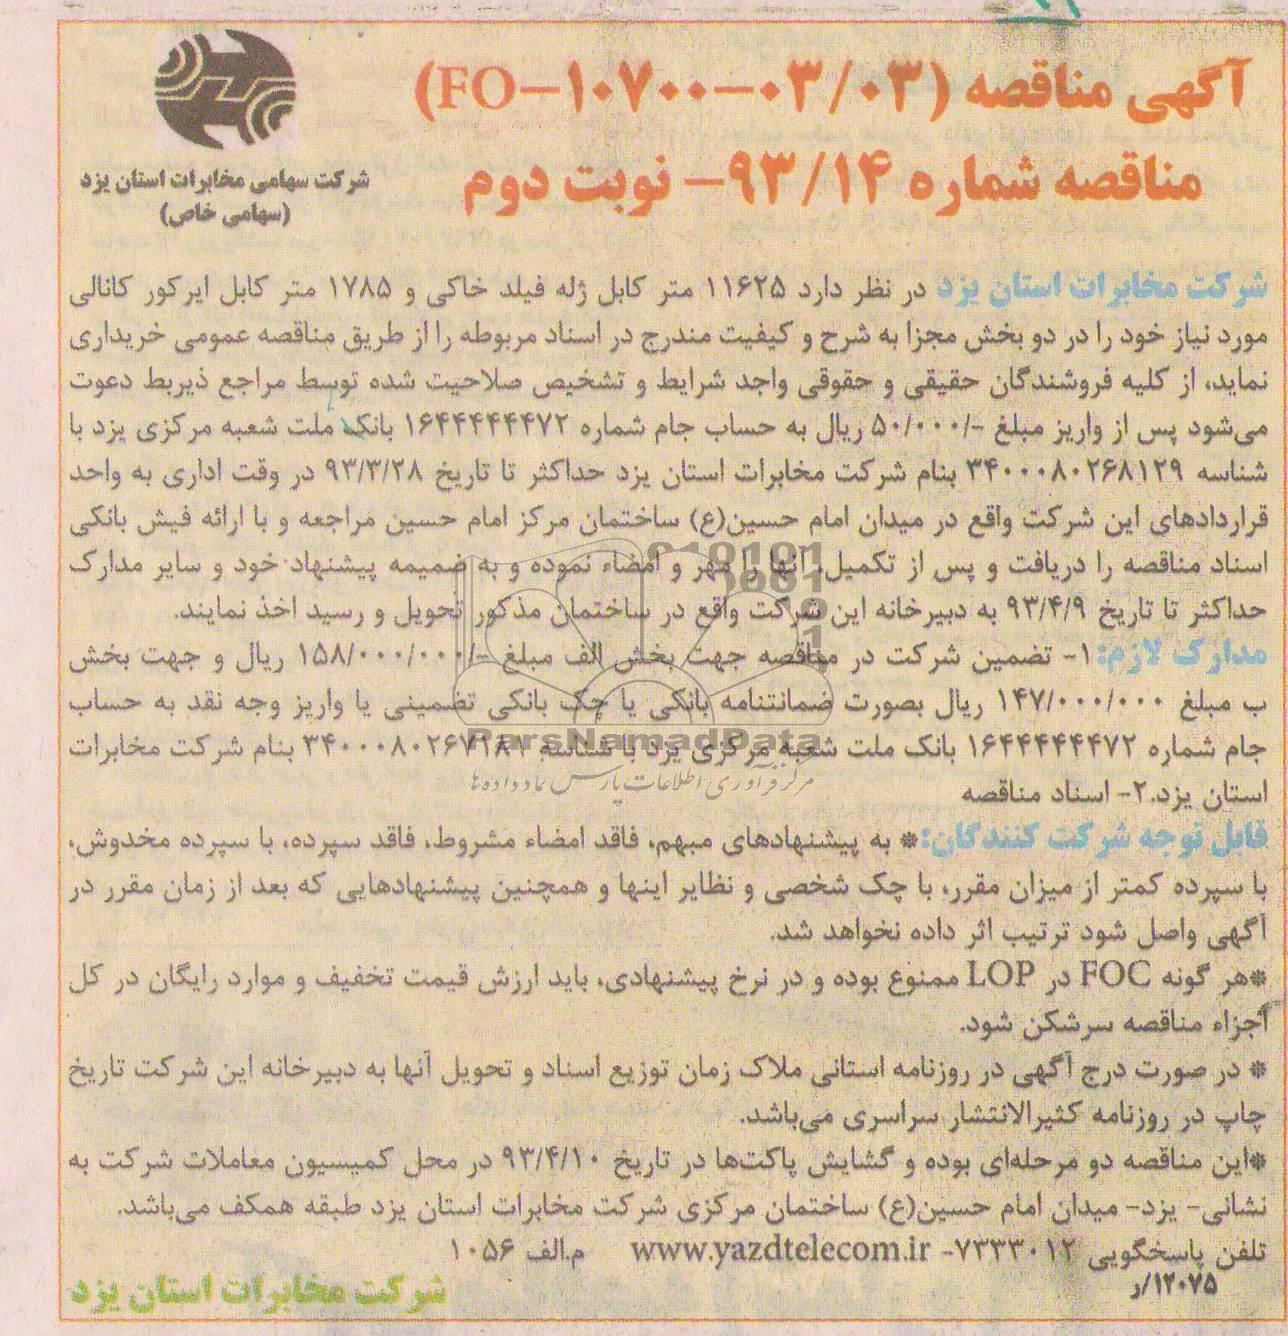 آگهی مناقصه (FO-۱۰۷۰۰-۰۳/۰۳)
مناقصه شماره ۹۳/۱۴- نوبت دوم
شرکت سهامی مخابرات استان یزد
(سهامی خاص)
شرکت مخابرات استان یزد در نظر دارد ۱۱۶۲۵ متر کابل ژله فیلد خاکی و ۱۷۸۵ متر کابل ایرکور کانالی
مورد نیاز خود را در دو بخش مجزا به شرح و کیفیت مندرج در اسناد مربوطه را از طریق مناقصه عمومی خریداری
نماید، از کلیه فروشندگان حقیقی و حقوقی واجد شرایط و تشخیص صلاحیت شده توسط مراجع ذیربط دعوت
می‌شود پس از واریز مبلغ -/۵۰/۰۰۰ ریال به حساب جام شماره ۱۶۴۴۴۴۴۴۷۲ بانک ملت شعبه مرکزی یزد با
شناسه ۳۴۰۰۰۸۰۲۶۸۱۲۹ بنام شرکت مخابرات استان یزد حداکثر تا تاریخ ۹۳/۳/۲۸ در وقت اداری به واحد
قراردادهای این شرکت واقع در میدان امام حسین(ع) ساختمان مرکز امام حسین مراجعه و با ارائه فیش بانکی
اسناد مناقصه را دریافت و پس از تکمیل، آنها را مهر و امضاء نموده و به ضمیمه پیشنهاد خود و سایر مدارک
حداکثر تا تاریخ ۹۳/۴/۹ به دبیرخانه این شرکت واقع در ساختمان مذکور تحویل و رسید اخذ نمایند.
مدارک لازم: ۱- تضمین شرکت در مناقصه جهت بخش الف مبلغ -/۱۵۸/۰۰۰/۰۰۰ ریال و جهت بخش
ب مبلغ ۱۴۷/۰۰۰/۰۰۰ ریال بصورت ضمانتنامه بانکی یا چک بانکی تضمینی یا واریز وجه نقد به حساب
جام شماره ۱۶۴۴۴۴۴۴۷۲ بانک ملت شعبه مرکزی یزد با شناسه بنام شرکت مخابرات
استان یزد.۲- اسناد مناقصه
قابل توجه شرکت کنندگان:* به پیشنهادهای مبهم، فاقد امضاء مشروط، فاقد سپرده، با سپرده مخدوش،
با سپرده کمتر از میزان مقرر، با چک شخصی و نظایر اینها و همچنین پیشنهادهایی که بعد از زمان مقرر در
آگهی واصل شود ترتیب اثر داده نخواهد شد.
*هر گونه FOC در LOP ممنوع بوده و در نرخ پیشنهادی، باید ارزش قیمت تخفیف و موارد رایگان در کل
اجزاء مناقصه سرشکن شود.
* در صورت درج آگهی در روزنامه استانی ملاک زمان توزیع اسناد و تحویل آنها به دبیرخانه این شرکت تاریخ
چاپ در روزنامه کثیرالانتشار سراسری می‌باشد.
*این مناقصه دو مرحله‌ای بوده و گشایش پاکت‌ها در تاریخ ۹۳/۴/۱۰ در محل کمیسیون معاملات شرکت به
نشانی- یزد- میدان امام حسین(ع) ساختمان مرکزی شرکت مخابرات استان یزد طبقه همکف می‌باشد.
تلفن پاسخگویی ۷۲۳۳۰۱۲- www.yazdtelecom.ir م.الف ۱۰۵۶
۱۲۰۷۵/ر
شرکت مخابرات استان یزد
ParsNamadData
مرکز فرآوری اطلاعات پارس نماد داده‌ها